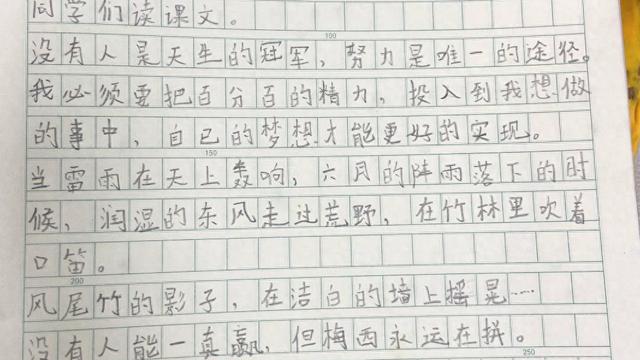 同学们读课文。
没有人是天生的冠军，努力是唯一的途径。
100
我必须要把百分百的精力，投入到我想做
的事中，自己的梦想才能更好的实现。
150
当雷雨在天上轰响，六月的阵雨落下的时
候，润湿的东风走过荒野，在竹林里吹着
口笛。
200
风尾竹的影子，在洁白的墙上摇晃……
没有人能一直赢，但梅西永远在拼。
250